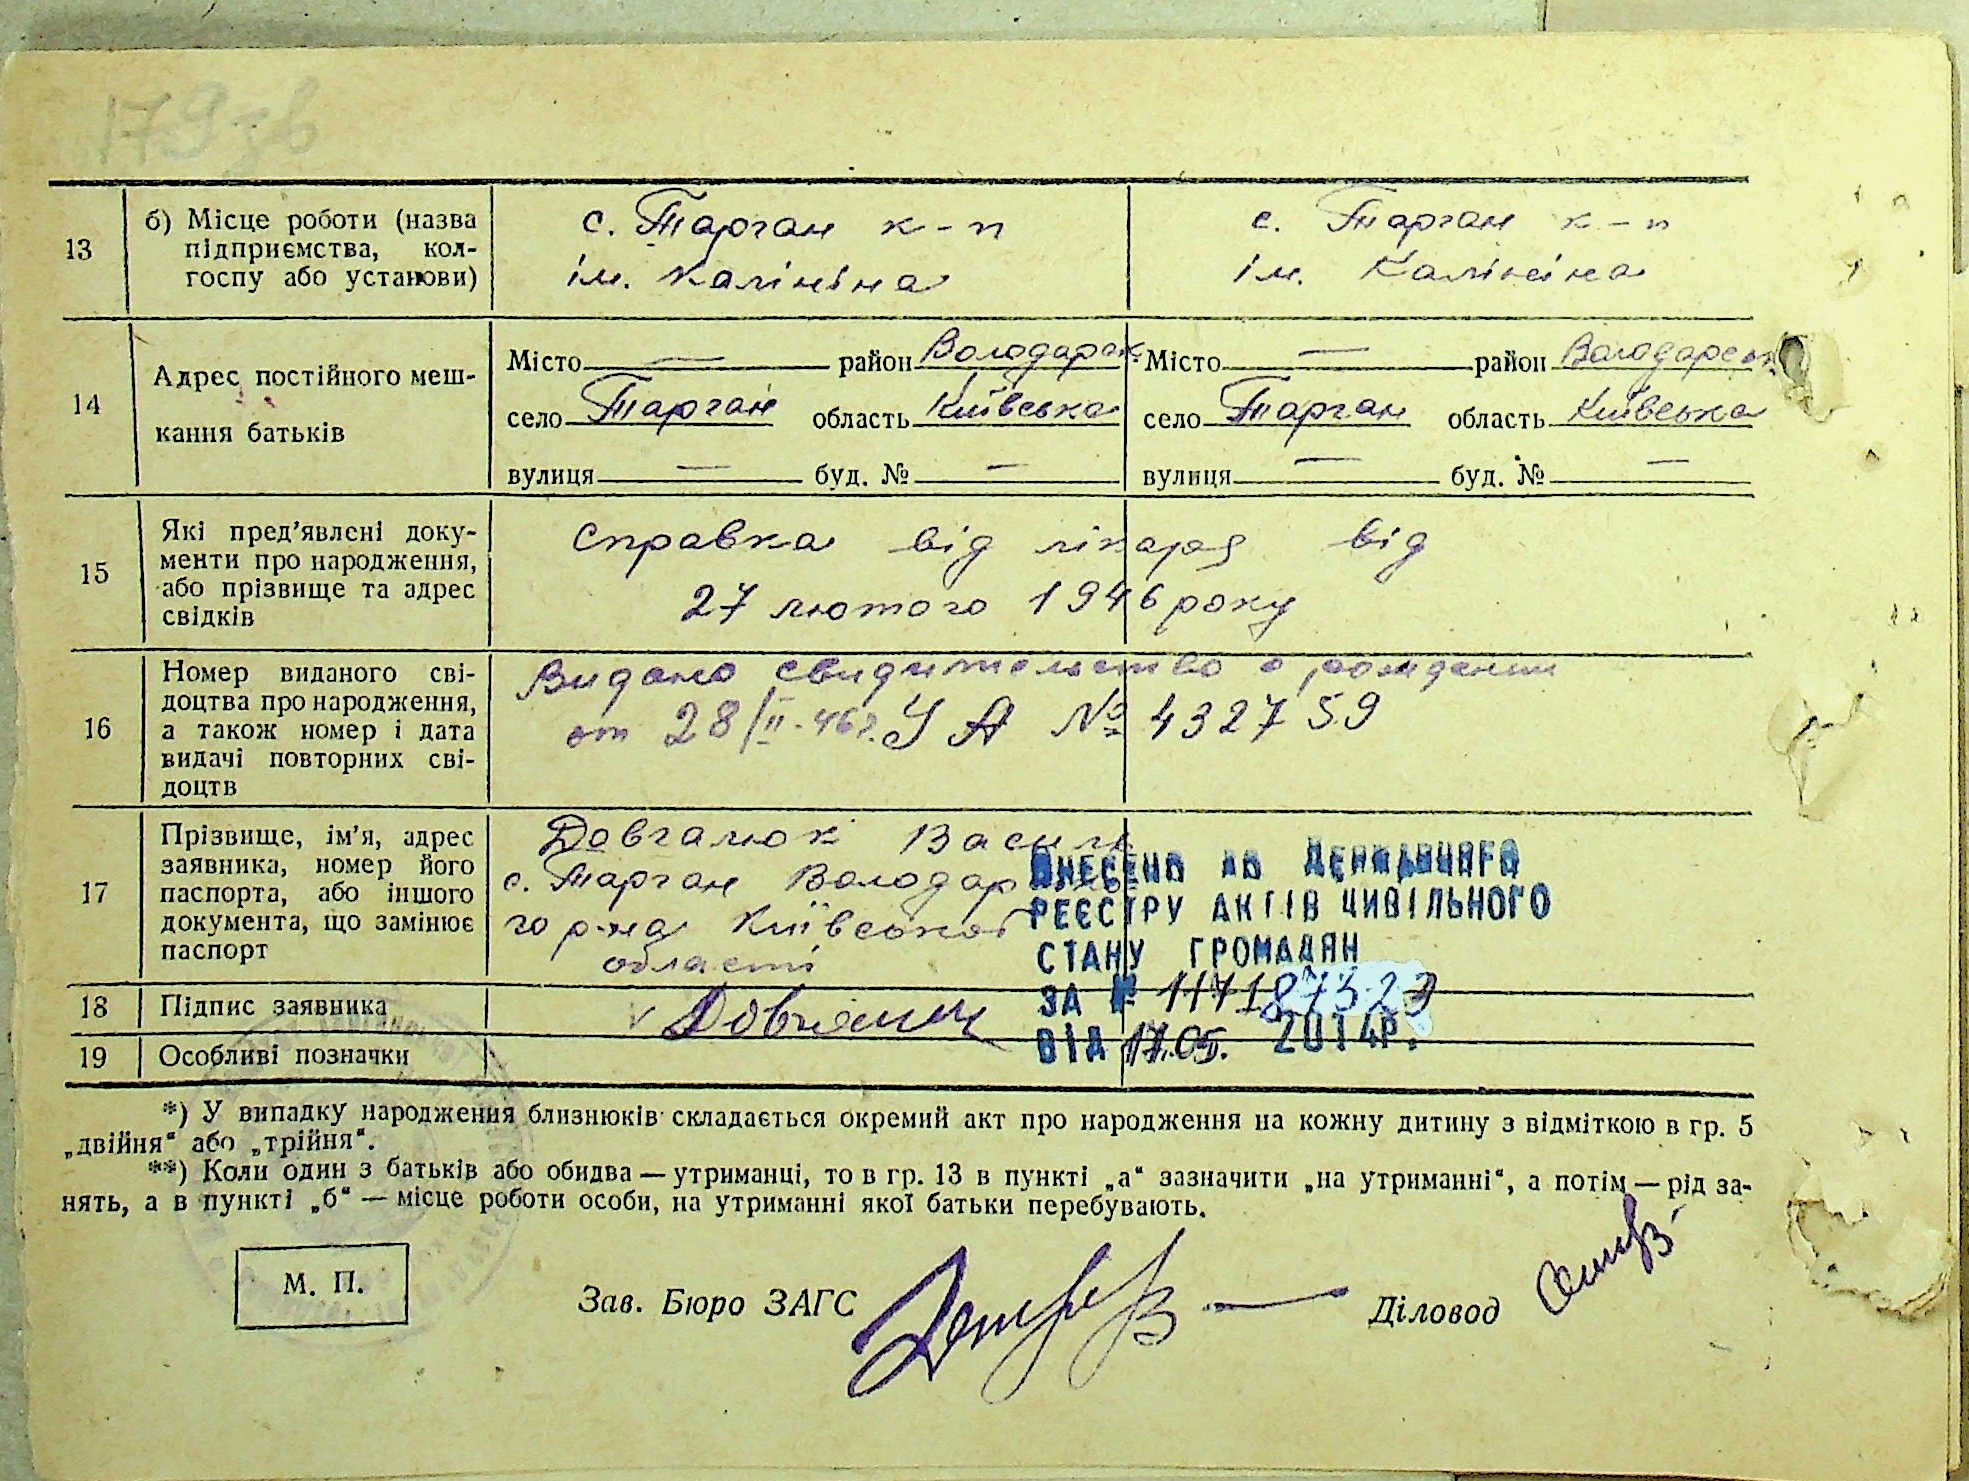 179 зв
13
б) Місце роботи (назва підприємства, кол-госпу або установи)
с. Тарган к-п
ім. Калініна
с. Тарган к-п
ім. Калініна
14
Адрес постійного меш-
кання батьків
Місто — район Володарськ
село Тарган область Київська
вулиця — буд. № —
Місто — район Володарськ
село Тарган область Київська
вулиця — буд. № —
15
Які пред'явлені доку-
менти про народження,
або прізвище та адрес
свідків
Справка від лікаря від
27 лютого 1946 року
16
Номер виданого сві-
доцтва про народження,
а також номер і дата
видачі повторних сві-
доцтв
Видано свидительство о рождении
от 28/II-46г. УА № 432759
17
Прізвище, ім'я, адрес
заявника, номер його
паспорта, або іншого
документа, що замінює
паспорт
Довгалюк Василь
с. Тарган Володарсько
го р-на Київської
області
ВНЕСЕНО ДО ДЕРЖАВНОГО
РЕЄСТРУ АКТІВ ЦИВІЛЬНОГО
СТАНУ ГРОМАДЯН
ЗА №
ВІД 17.05. 2014Р.
18
Підпис заявника
19
Особливі позначки
*) У випадку народження близнюків складається окремий акт про народження на кожну дитину з відміткою в гр. 5
„двійня“ або „трійня“.
**) Коли один з батьків або обидва — утриманці, то в гр. 13 в пункті „а“ зазначити „на утриманні“, а потім — рід за-
нять, а в пункті „б“ — місце роботи особи, на утриманні якої батьки перебувають.
М. П.
Зав. Бюро ЗАГС
Діловод